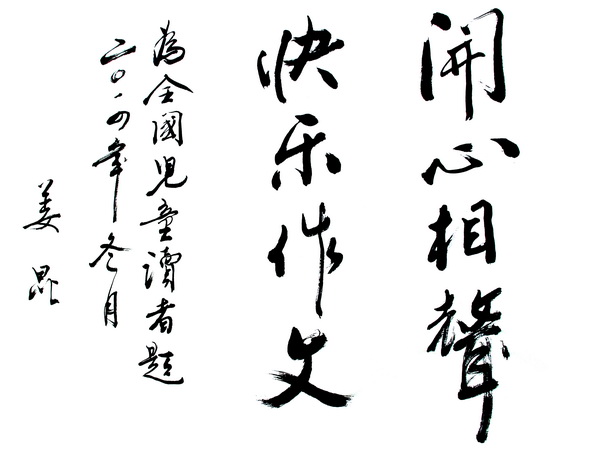 開心相聲
快乐作文
為全國兒童讀者題
二〇一四年冬月
姜昆